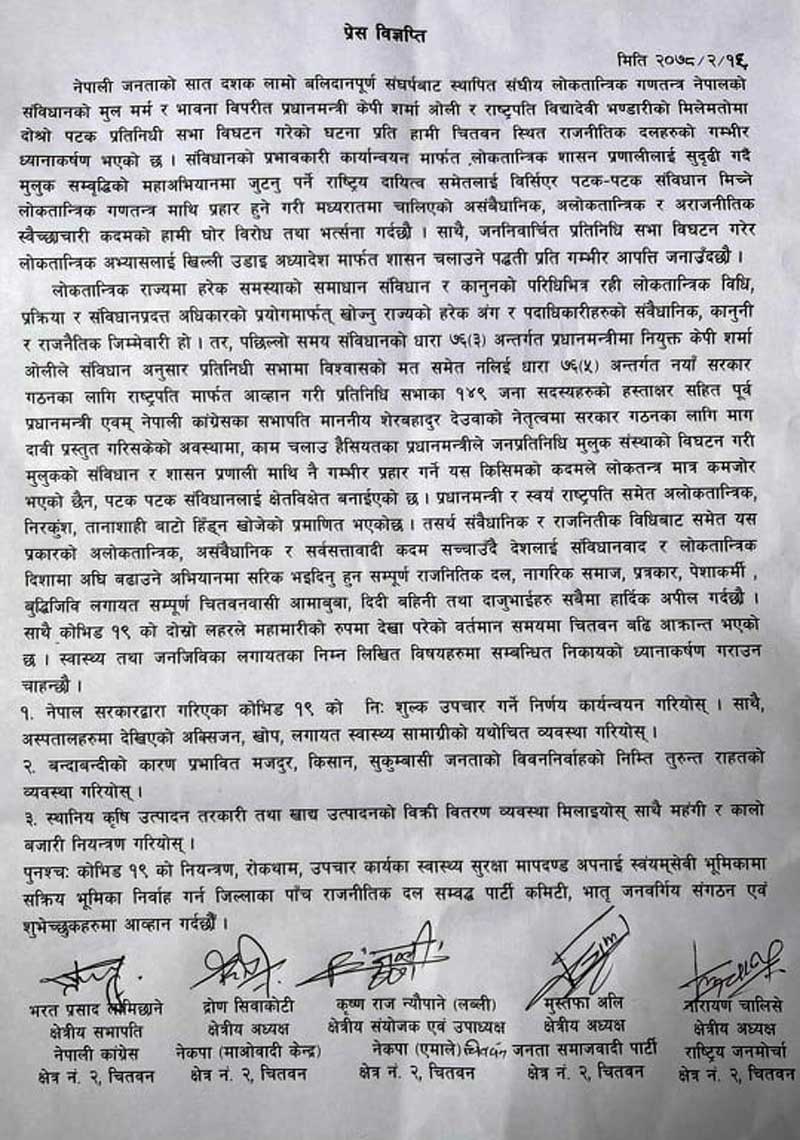 प्रेस विज्ञप्ति
मिति २०७८/२/१६
नेपाली जनताको सात दशक लामो बलिदानपूर्ण संघर्षबाट स्थापित संघीय लोकतान्त्रिक गणतन्त्र नेपालको
संविधानको मुल मर्म र भावना विपरीत प्रधानमन्त्री केपी शर्मा ओली र राष्ट्रपति विद्यादेवी भण्डारीको मिलेमतोमा
दोश्रो पटक प्रतिनिधी सभा विघटन गरेको घटना प्रति हामी चितवन स्थित राजनीतिक दलहरुको गम्भीर
ध्यानाकर्षण भएको छ । संविधानको प्रभावकारी कार्यान्वयन मार्फत लोकतान्त्रिक शासन प्रणालीलाई सुदृढी गदै
मुलुक सम्वृद्धिको महाअभियानमा जुटनु पर्ने राष्ट्रिय दायित्व समेतलाई विर्सिएर पटक-पटक संविधान मिच्ने
लोकतान्त्रिक गणतन्त्र माथि प्रहार हुने गरी मध्यरातमा चालिएको असंवैधानिक, अलोकतान्त्रिक र अराजनीतिक
स्वैच्छाचारी कदमको हामी घोर विरोध तथा भर्त्सना गर्दछौ । साथै, जननिवार्चित प्रतिनिधि सभा विघटन गरेर
लोकतान्त्रिक अभ्यासलाई खिल्ली उडाइ अध्यादेश मार्फत शासन चलाउने पद्धती प्रति गम्भीर आपत्ति जनाउँदछौ ।
लोकतान्त्रिक राज्यमा हरेक समस्याको समाधान संविधान र कानुनको परिधिभित्र रही लोकतान्त्रिक विधि,
प्रक्रिया र संविधानप्रदत्त अधिकारको प्रयोगमार्फत् खोज्नु राज्यको हरेक अंग र पदाधिकारीहरुको संवैधानिक, कानुनी
र राजनैतिक जिम्मेवारी हो । तर, पछिल्लो समय संविधानको धारा ७६(३) अन्तर्गत प्रधानमन्त्रीमा नियुक्त केपी शर्मा
ओलीले संविधान अनुसार प्रतिनिधी सभामा विश्वासको मत समेत नलिई धारा ७६(५) अन्तर्गत नयाँ सरकार
गठनका लागि राष्ट्रपति मार्फत आव्हान गरी प्रतिनिधि सभाका १४९ जना सदस्यहरुको हस्ताक्षर सहित पूर्व
प्रधानमन्त्री एवम् नेपाली कांग्रेसका सभापति माननीय शेरबहादुर देउवाको नेतृत्वमा सरकार गठनका लागि माग
दावी प्रस्तुत गरिसकेको अवस्थामा, काम चलाउ हैसियतका प्रधानमन्त्रीले जनप्रतिनिधि मुलुक संस्थाको विघटन गरी
मुलुकको संविधान र शासन प्रणाली माथि नै गम्भीर प्रहार गर्ने यस किसिमको कदमले लोकतन्त्र मात्र कमजोर
भएको छैन, पटक पटक संविधानलाई क्षेतविक्षेत बनाईएको छ । प्रधानमन्त्री र स्वयं राष्ट्रपति समेत अलोकतान्त्रिक,
निरकुंश, तानाशाही बाटो हिंड्न खोजेको प्रमाणित भएकोछ । तसर्थ संवैधानिक र राजनितीक विधिबाट समेत यस
प्रकारको अलोकतान्त्रिक, असंवैधानिक र सर्वसत्तावादी कदम सच्चाउँदै देशलाई संविधानवाद र लोकतान्त्रिक
दिशामा अघि बढाउने अभियानमा सरिक भइदिनु हुन सम्पूर्ण राजनितिक दल, नागरिक समाज, प्रत्रकार, पेशाकर्मी ,
बुद्धिजिवि लगायत सम्पूर्ण चितवनवासी आमाबुबा, दिदी बहिनी तथा दाजुभाईहरु सबैमा हार्दिक अपील गर्दछौ ।
साथै कोभिड १९ को दोस्रो लहरले महामारीको रुपमा देखा परेको वर्तमान समयमा चितवन बढि आक्रान्त भएको
छ । स्वास्थ्य तथा जनजिविका लगायतका निम्न लिखित विषयहरुमा सम्बन्धित निकायको ध्यानाकर्षण गराउन
चाहन्छौ ।
१. नेपाल सरकारद्वारा गरिएका कोभिड १९ को निः शुल्क उपचार गर्ने निर्णय कार्यन्वयन गरियोस् । साथै,
अस्पतालहरुमा देखिएको अक्सिजन, खोप, लगायत स्वास्थ्य सामाग्रीको यथोचित व्यवस्था गरियोस् ।
२. बन्दाबन्दीको कारण प्रभावित मजदुर, किसान, सुकुम्बासी जनताको विवननिर्वाहको निम्ति तुरुन्त राहतको
व्यवस्था गरियोस् ।
३. स्थानिय कृषि उत्पादन तरकारी तथा खाद्य उत्पादनको विक्री वितरण व्यवस्था मिलाइयोस् साथै महंगी र कालो
बजारी नियन्त्रण गरियोस् ।
पुनश्चः कोभिड १९ को नियन्त्रण, रोकथाम, उपचार कार्यका स्वास्थ्य सुरक्षा मापदण्ड अपनाई स्वंयम्सेवी भूमिकामा
सक्रिय भूमिका निर्वाह गर्न जिल्लाका पाँच राजनीतिक दल सम्वद्ध पार्टी कमिटी, भातृ जनवर्गिय संगठन एवं
शुभेच्छुकहरुमा आव्हान गर्दछौं ।
भरत प्रसाद लामिछाने द्रोण सिवाकोटी कृष्ण राज न्यौपाने (लब्ली) मुस्तफा अलि नारायण चालिसे
क्षेत्रीय सभापति क्षेत्रीय अध्यक्ष क्षेत्रीय संयोजक एवं उपाध्यक्ष क्षेत्रीय अध्यक्ष क्षेत्रीय अध्यक्ष
नेपाली कांग्रेस नेकपा (माओवादी केन्द्र) नेकपा (एमाले) चितवन जनता समाजवादी पार्टी राष्ट्रिय जनमोर्चा
क्षेत्र नं. २, चितवन क्षेत्र नं. २, चितवन क्षेत्र नं. २, चितवन क्षेत्र नं. २, चितवन क्षेत्र नं. २, चितवन